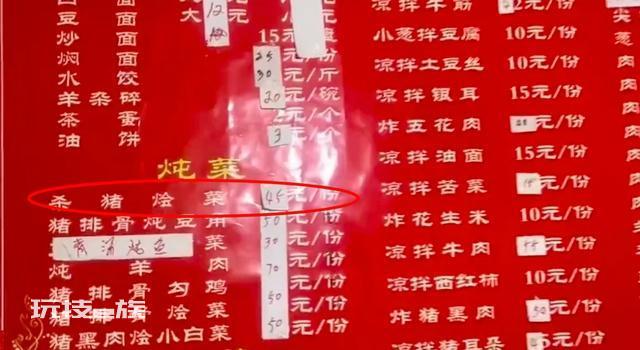 豆面
炒面 15元/盘
焖面 25元/份
水饺 30元/斤
羊杂碎 20元/碗
茶蛋 元/个
油饼 3元/个
炖菜
杀猪烩菜 45元/份
猪排骨炖豆角 50元/份
汤炖鱼 30元/份
炖羊肉 70元/份
猪排骨勾鸡 50元/份
猪黑肉烩小白菜 50元/份
凉拌牛筋 元/份
小葱拌豆腐 10元/份
凉拌土豆丝 10元/份
凉拌银耳 15元/份
炸五花肉 元/份
凉拌油面 15元/份
凉拌苦菜 元/份
炸花生米 10元/份
凉拌牛肉 元/份
凉拌西红柿 10元/份
炸猪黑肉 50元/份
凉拌猪耳朵 元/份
尖
葱
肉
肉
肉
肉
玩技一族